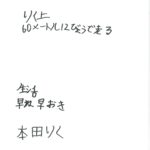 りく上
60メートル12びょうで走る
生活
早ね早おき
本田りく